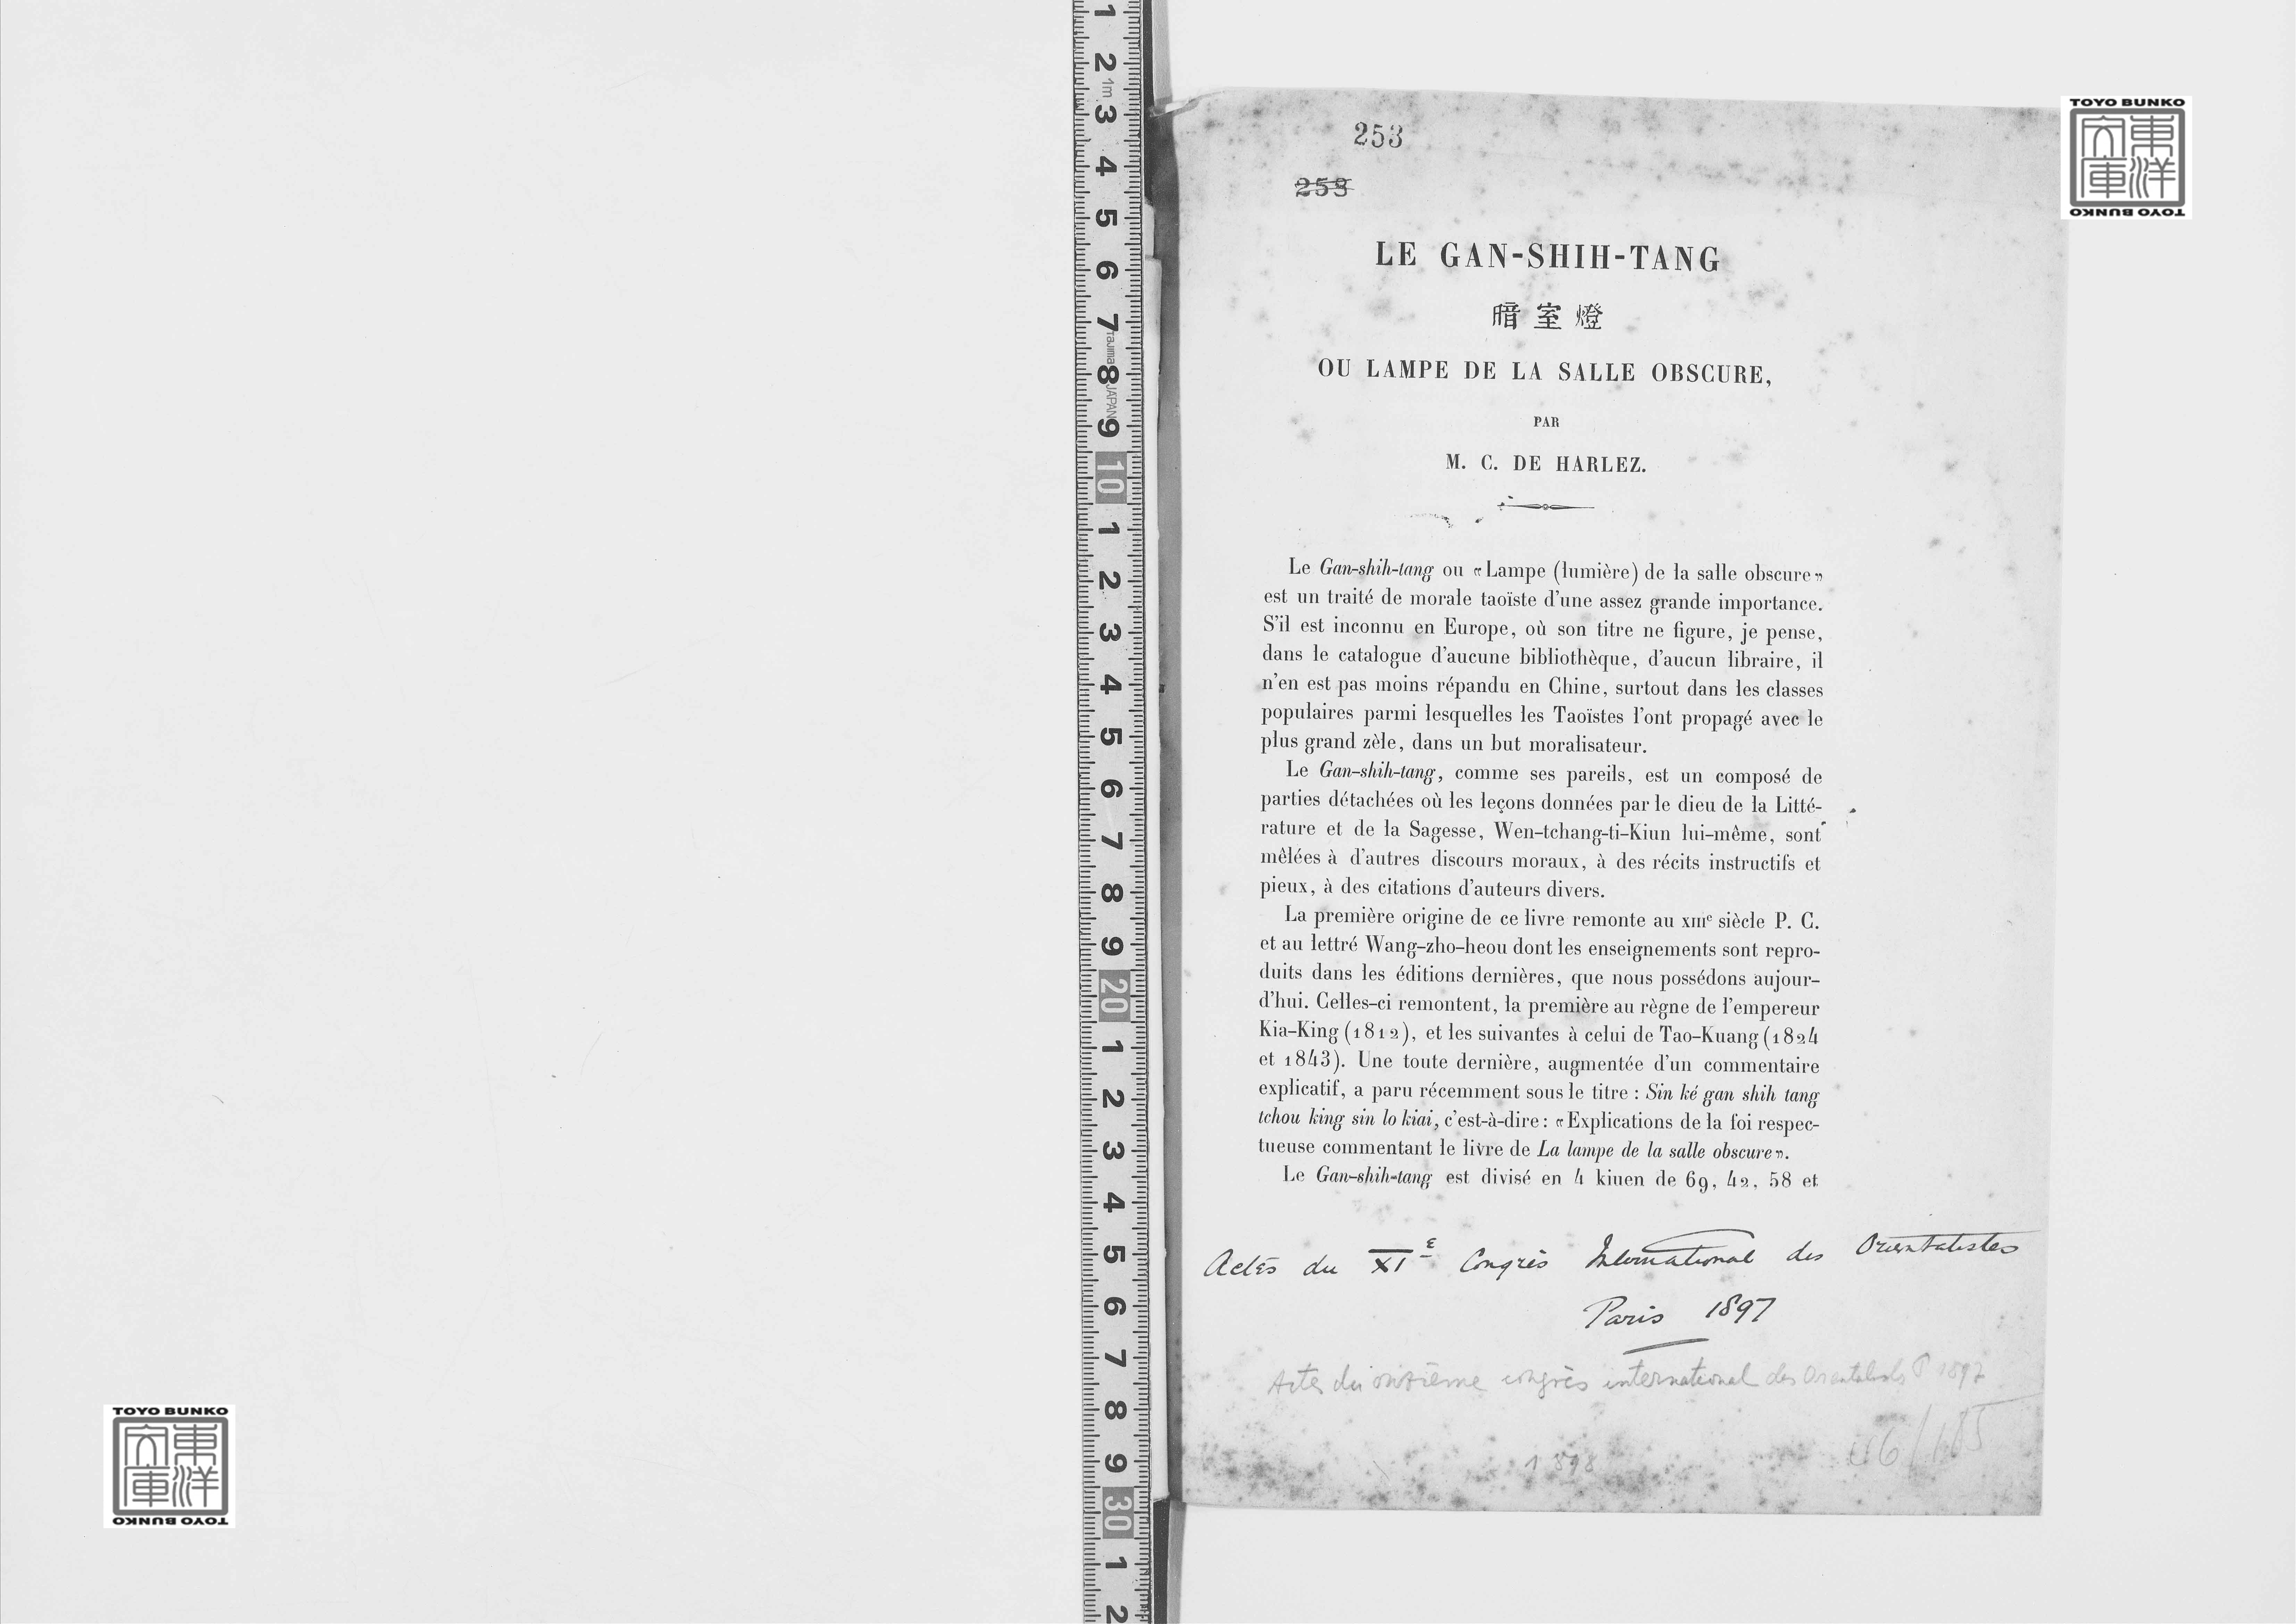 253
253
LE GAN-SHIH-TANG
暗室燈
OU LAMPE DE LA SALLE OBSCURE,
PAR
M. C. DE HARLEZ.
Le Gan-shih-tang ou «Lampe (lumière) de la salle obscure»
est un traité de morale taoïste d'une assez grande importance.
S'il est inconnu en Europe, où son titre ne figure, je pense,
dans le catalogue d'aucune bibliothèque, d'aucun libraire, il
n'en est pas moins répandu en Chine, surtout dans les classes
populaires parmi lesquelles les Taoïstes l'ont propagé avec le
plus grand zèle, dans un but moralisateur.
Le Gan-shih-tang, comme ses pareils, est un composé de
parties détachées où les leçons données par le dieu de la Litté-
rature et de la Sagesse, Wen-tchang-ti-Kiun lui-même, sont
mêlées à d'autres discours moraux, à des récits instructifs et
pieux, à des citations d'auteurs divers.
La première origine de ce livre remonte au XIIIe siècle P. C.
et au lettré Wang-zho-heou dont les enseignements sont repro-
duits dans les éditions dernières, que nous possédons aujour-
d'hui. Celles-ci remontent, la première au règne de l'empereur
Kia-King (1812), et les suivantes à celui de Tao-Kuang (1824
et 1843). Une toute dernière, augmentée d'un commentaire
explicatif, a paru récemment sous le titre : Sin ké gan shih tang
tchou king sin lo kiai, c'est-à-dire : «Explications de la foi respec-
tueuse commentant le livre de La lampe de la salle obscure».
Le Gan-shih-tang est divisé en 4 kiuen de 69, 42, 58 et
Actes du XIe Congrès International des Orientalistes
Paris 1897
Actes du onzième congrès international des Orientalists P 1897
1898
TOYO BUNKO
東洋文庫
TOYO BUNKO
TOYO BUNKO
東洋文庫
TOYO BUNKO
1 2 3 4 5 6 7 8 9 10 1 2 3 4 5 6 7 8 9 20 1 2 3 4 5 6 7 8 9 30 1 2
1m
Tajima
JAPAN